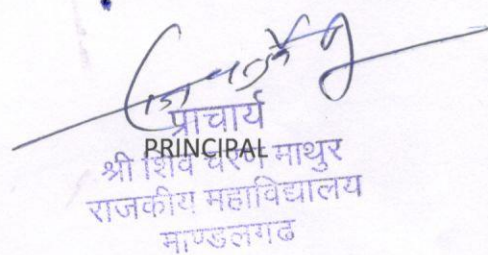 प्राचार्य
PRINCIPAL
श्री शिव चरण माथुर
राजकीय महाविद्यालय
माण्डलगढ